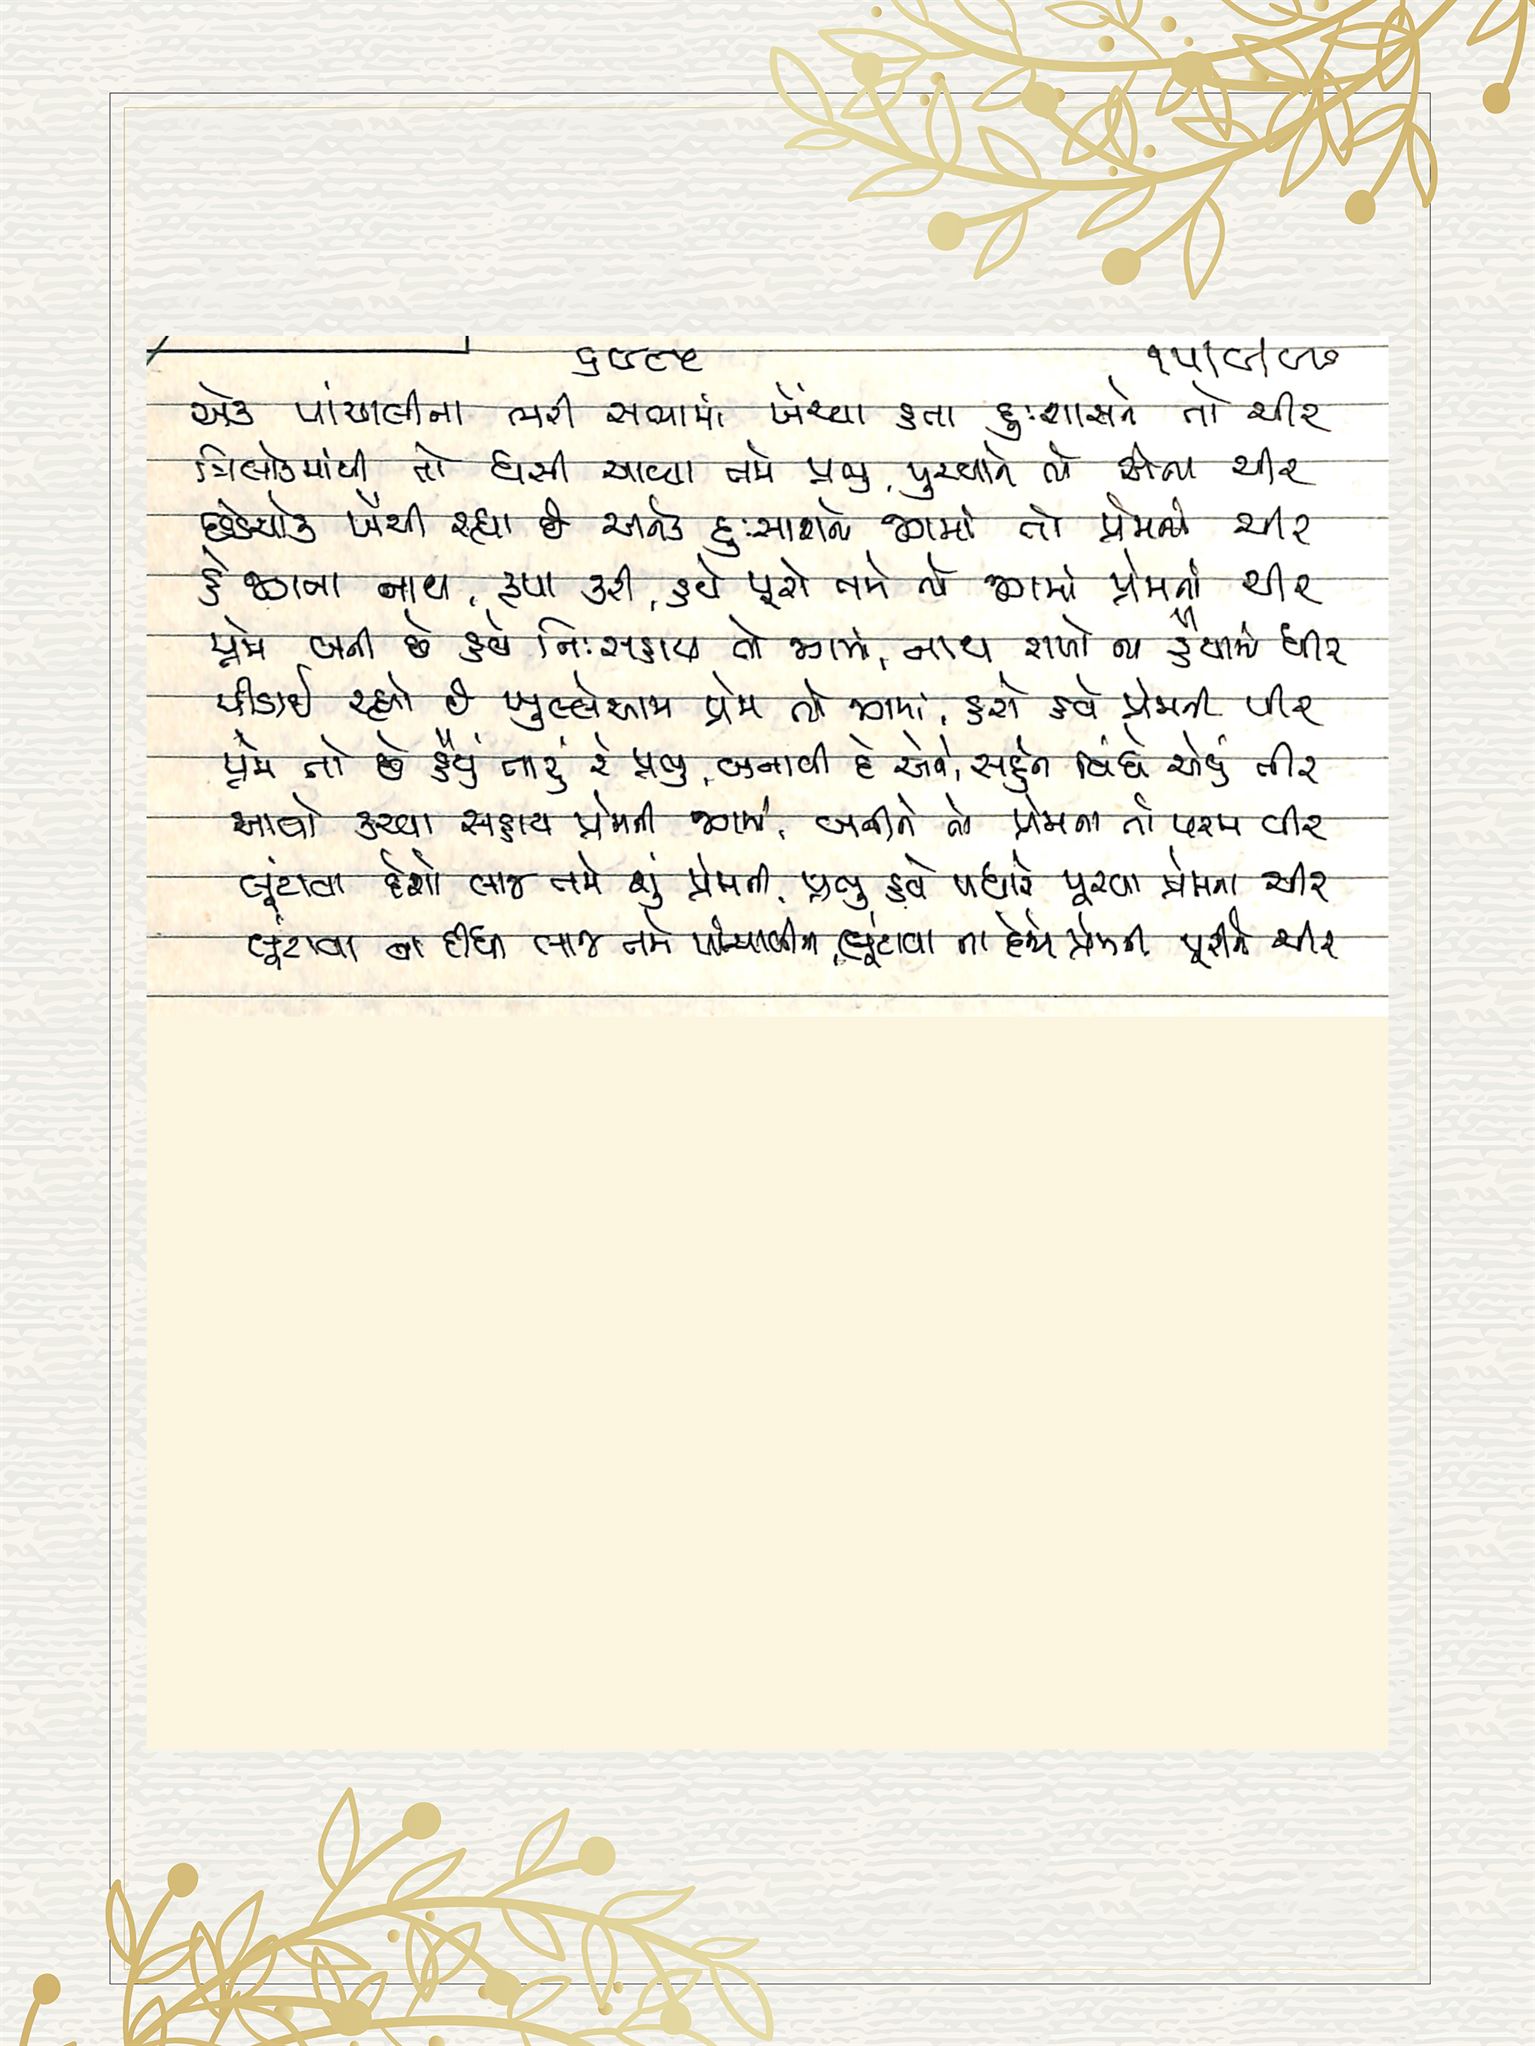 ૬૯૮૫ ૧૫/૯/૯૭
એક પાંચાલીના ભરી સભામાં ખેંચ્યા હતા દુઃશાસને તો ચીર
ત્રિલોકમાંથી તો ધસી આવ્યા તમે પ્રભુ, પુરવાને તો એના ચીર
છડેચોક ખેંચી રહ્યા છે અનેક દુઃસાશનો જગમાં તો પ્રેમનાં ચીર
હે જગના નાથ, કૃપા કરી, હવે પૂરો તમે તો જગમાં પ્રેમનાં ચીર
પ્રેમ બની છે હવે નિઃસહાય તો જગમાં, નાથ રાખો ના હૈયામાં ધીર
પીડાઈ રહ્યો છે ખુલ્લેઆમ પ્રેમ તો જગમાં, હરો હવે પ્રેમની પીર
પ્રેમ તો છે હૈયું તારું રે પ્રભુ, બનાવી દે એને, સહુને વિંધે એવું તીર
આવો કરવા સહાય પ્રેમની જગમાં, બનીને તો પ્રેમના તો પરમ વીર
લૂંટાવા દેશો લાજ તમે શું પ્રેમની, પ્રભુ હવે પધારો પૂરવા પ્રેમના ચીર
લૂંટાવા ના દીધી લાજ તમે પાંચાલીની, લૂંટાવા ના દેજો પ્રેમની પૂરીને ચીર